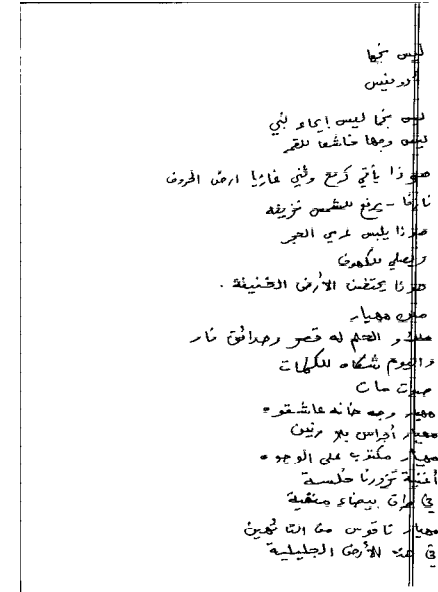 ليس نجما
أدونيس
ليس نجما ليس إيحاء نبي
ليس وجها خاشعا للقمر
هو ذا يأتي كرمح وثني غازيا ارض الحروف
نازفا - يرفع للشمس نزيفه
هو ذا يلبس عري الحجر
ويصلي للكهوف
هو ذا يحتضن الأرض الخفيفة .
ملك مهيار
ملك والحلم له قصر وحدائق نار
واليوم شكاه للكلمات
صوت مات
مهيار وجه خانه عاشقوه
مهيار أجراس بلا رنين
مهيار مكتوب على الوجوه
أغنية تزورنا خلسة
في طرق بيضاء منفية
مهيار ناقوس من التائهين
في هذه الأرض الجليلية